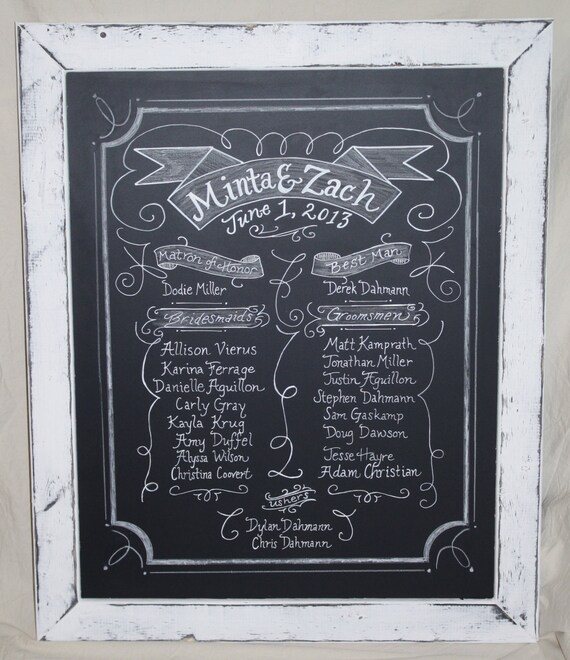 Minta & Zach
June 1, 2013
Matron of Honor
Dodie Miller
Bridesmaids
Allison Vierus
Karina Ferrage
Danielle Aguillon
Carly Gray
Kayla Krug
Amy Duffel
Alyssa Wilson
Christina Coovert
Best Man
Derek Dahmann
Groomsmen
Matt Kamprath
Jonathan Miller
Justin Aguillon
Stephen Dahmann
Sam Gaskamp
Doug Dawson
Jesse Hayre
Adam Christian
ushers
Dylan Dahmann
Chris Dahmann